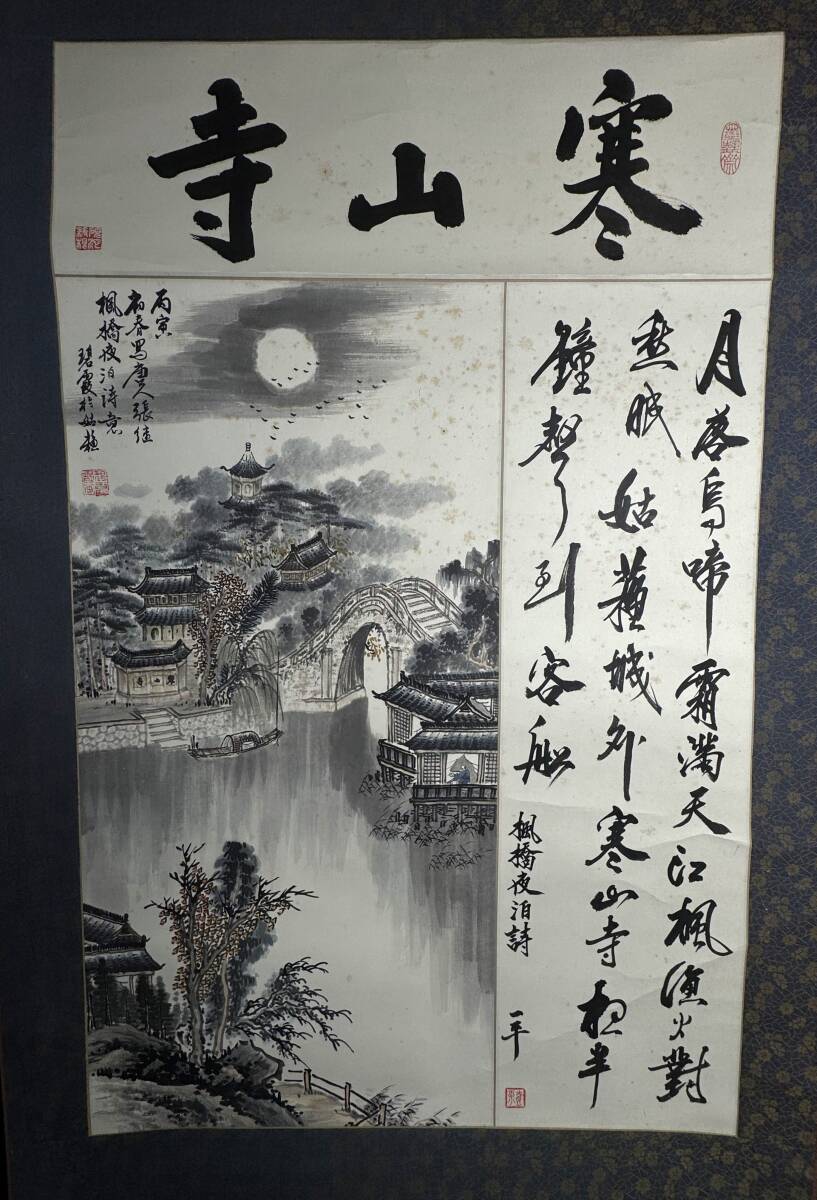 寒山寺
月落烏啼霜滿天江楓漁火對
愁眠姑蘇城外寒山寺夜半
鐘聲到客船
楓橋夜泊詩 一平
丙寅
初春寫唐人張继
楓橋夜泊诗意
碧霞於姑蘇
寒山寺